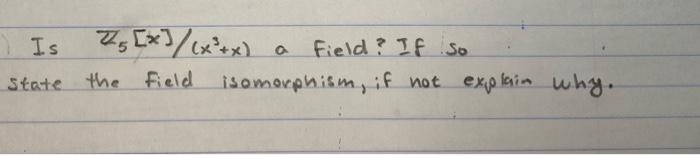 Is ℤ₅[x]/(x³+x) a field? If so
state the field isomorphism, if not explain why.